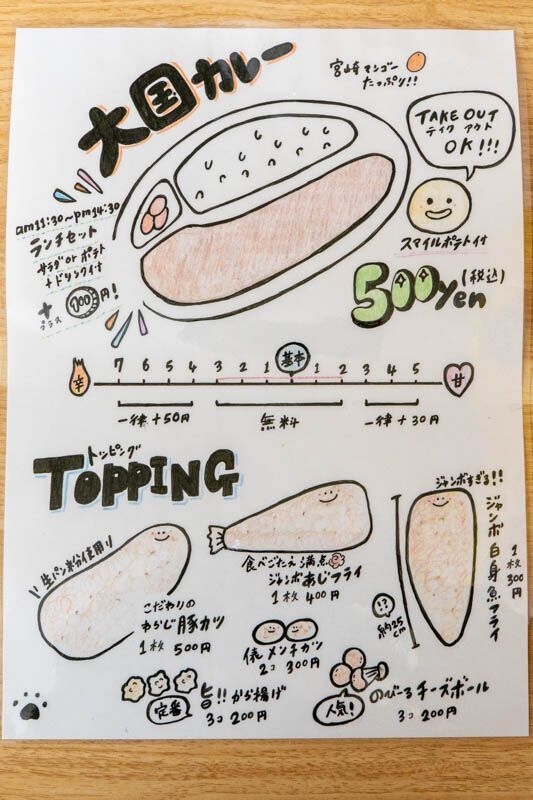 大国カレー
宮崎マンゴー
たっぷり!!
TAKE OUT
テイク アウト
OK!!!
am11:30~pm14:30
ランチセット
サラダ or ポテト
+ドリンク付
+
プラス
100円!
スマイルポテト付
500yen
(税込)
辛
7 6 5 4 3 2 1 基本 1 2 3 4 5
甘
一律+50円
無料
一律+30円
トッピング
TOPPING
生パン粉使用
こだわりの
わらじ豚カツ
1枚 500円
食べごたえ満点
ジャンボあじフライ
1枚 400円
ジャンボすぎる!!
ジャンボ白身魚フライ
1枚
300円
!?
約25cm
俵メンチカツ
2コ 300円
定番
旨!!から揚げ
3コ 200円
人気!
のび〜るチーズボール
3コ 200円